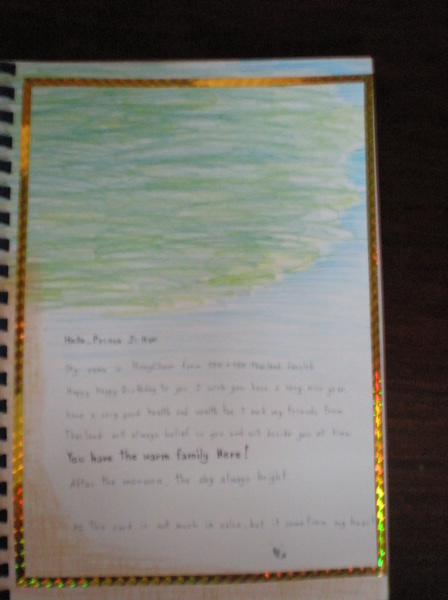 Hello, Prince Ji Hoo
My name is from Thailand
Happy Happy Birthday to you, I wish you have a very nice year
have a very good health and wealth too, I and my friends from
Thailand will always belief in you and will beside you all time
You have the warm family Here!
After the , the sky always bright
This card is not much in value, but it come from my heart